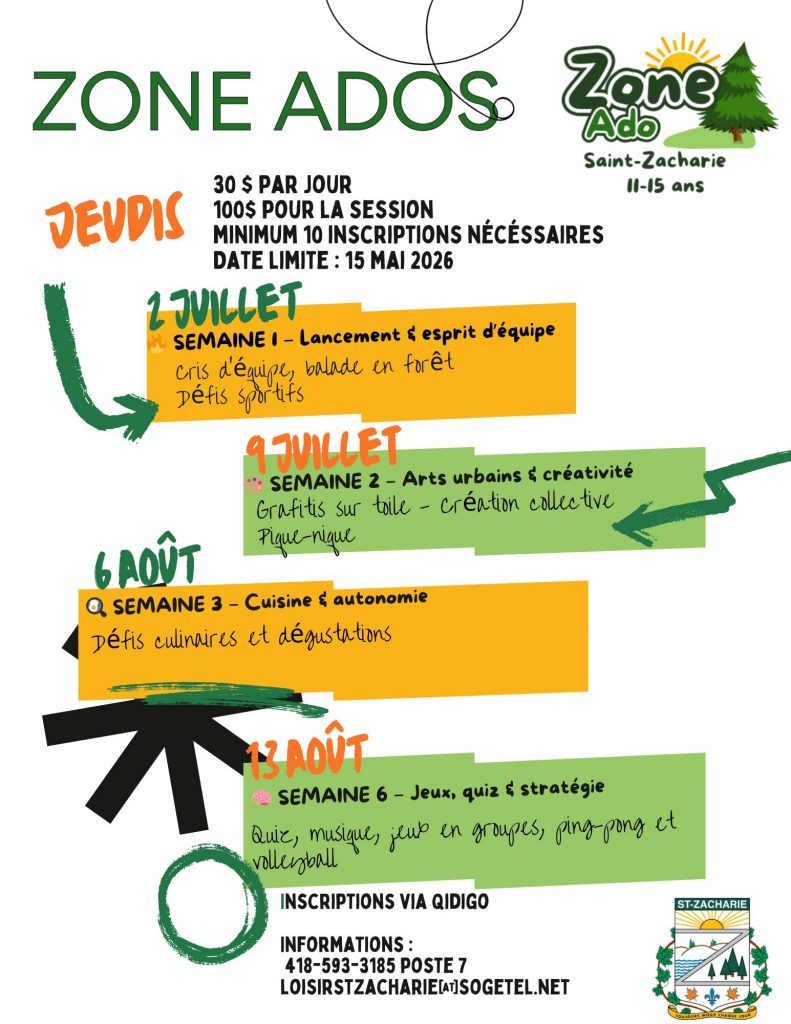 ZONE ADOS
Zone
Ado
Saint-Zacharie
11-15 ans
JEUDIS
30 $ PAR JOUR
100$ POUR LA SESSION
MINIMUM 10 INSCRIPTIONS NÉCÉSSAIRES
DATE LIMITE : 15 MAI 2026
2 JUILLET
SEMAINE 1 – Lancement & esprit d'équipe
Cris d'équipe, balade en forêt
Défis sportifs
9 JUILLET
SEMAINE 2 – Arts urbains & créativité
Grafitis sur toile – Création collective
Pique-nique
6 AOÛT
SEMAINE 3 – Cuisine & autonomie
Défis culinaires et dégustations
13 AOÛT
SEMAINE 6 – Jeux, quiz & stratégie
Quiz, musique, jeux en groupes, ping-pong et
volleyball
INSCRIPTIONS VIA QIDIGO
INFORMATIONS :
418-593-3185 POSTE 7
LOISIRSTZACHARIE[AT]SOGETEL.NET
ST-ZACHARIE
TOUJOURS MIEUX CHAQUE JOUR